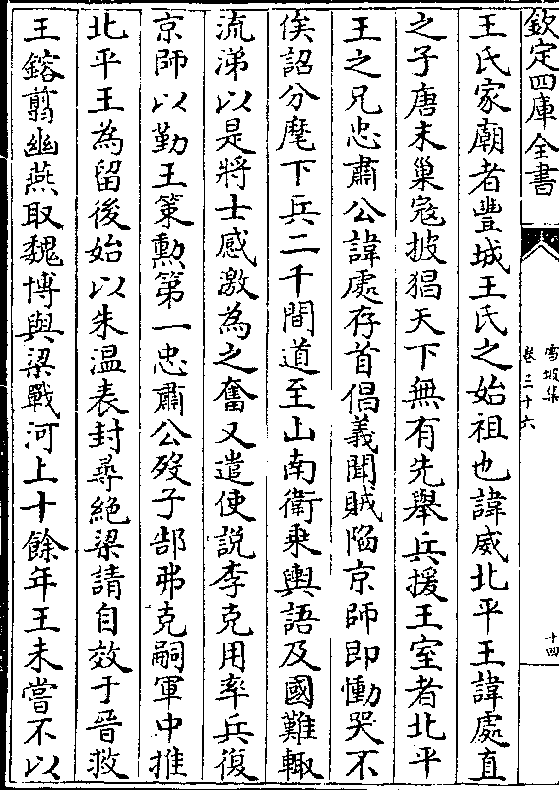 欽定四庫全書
雪坡集
卷三十六
十四
王氏家廟者豐城王氏之始祖也諱威北平王諱處直
之子唐末巢寇披猖天下無有先舉兵援王室者北平
王之兄忠肅公諱處存首倡義聞賊陷京師即慟哭不
俟詔分麾下兵二千間道至山南衛乗輿語及國難輙
流涕以是將士感激為之奮又遣使說李克用率兵復
京師以勤王第勲第一忠肅公歿子郜弗克嗣軍中推
北平王為留後始以朱溫表封尋絶梁請自效于晉救
王鎔翦幽燕取魏博與梁戰河上十餘年王未嘗不以